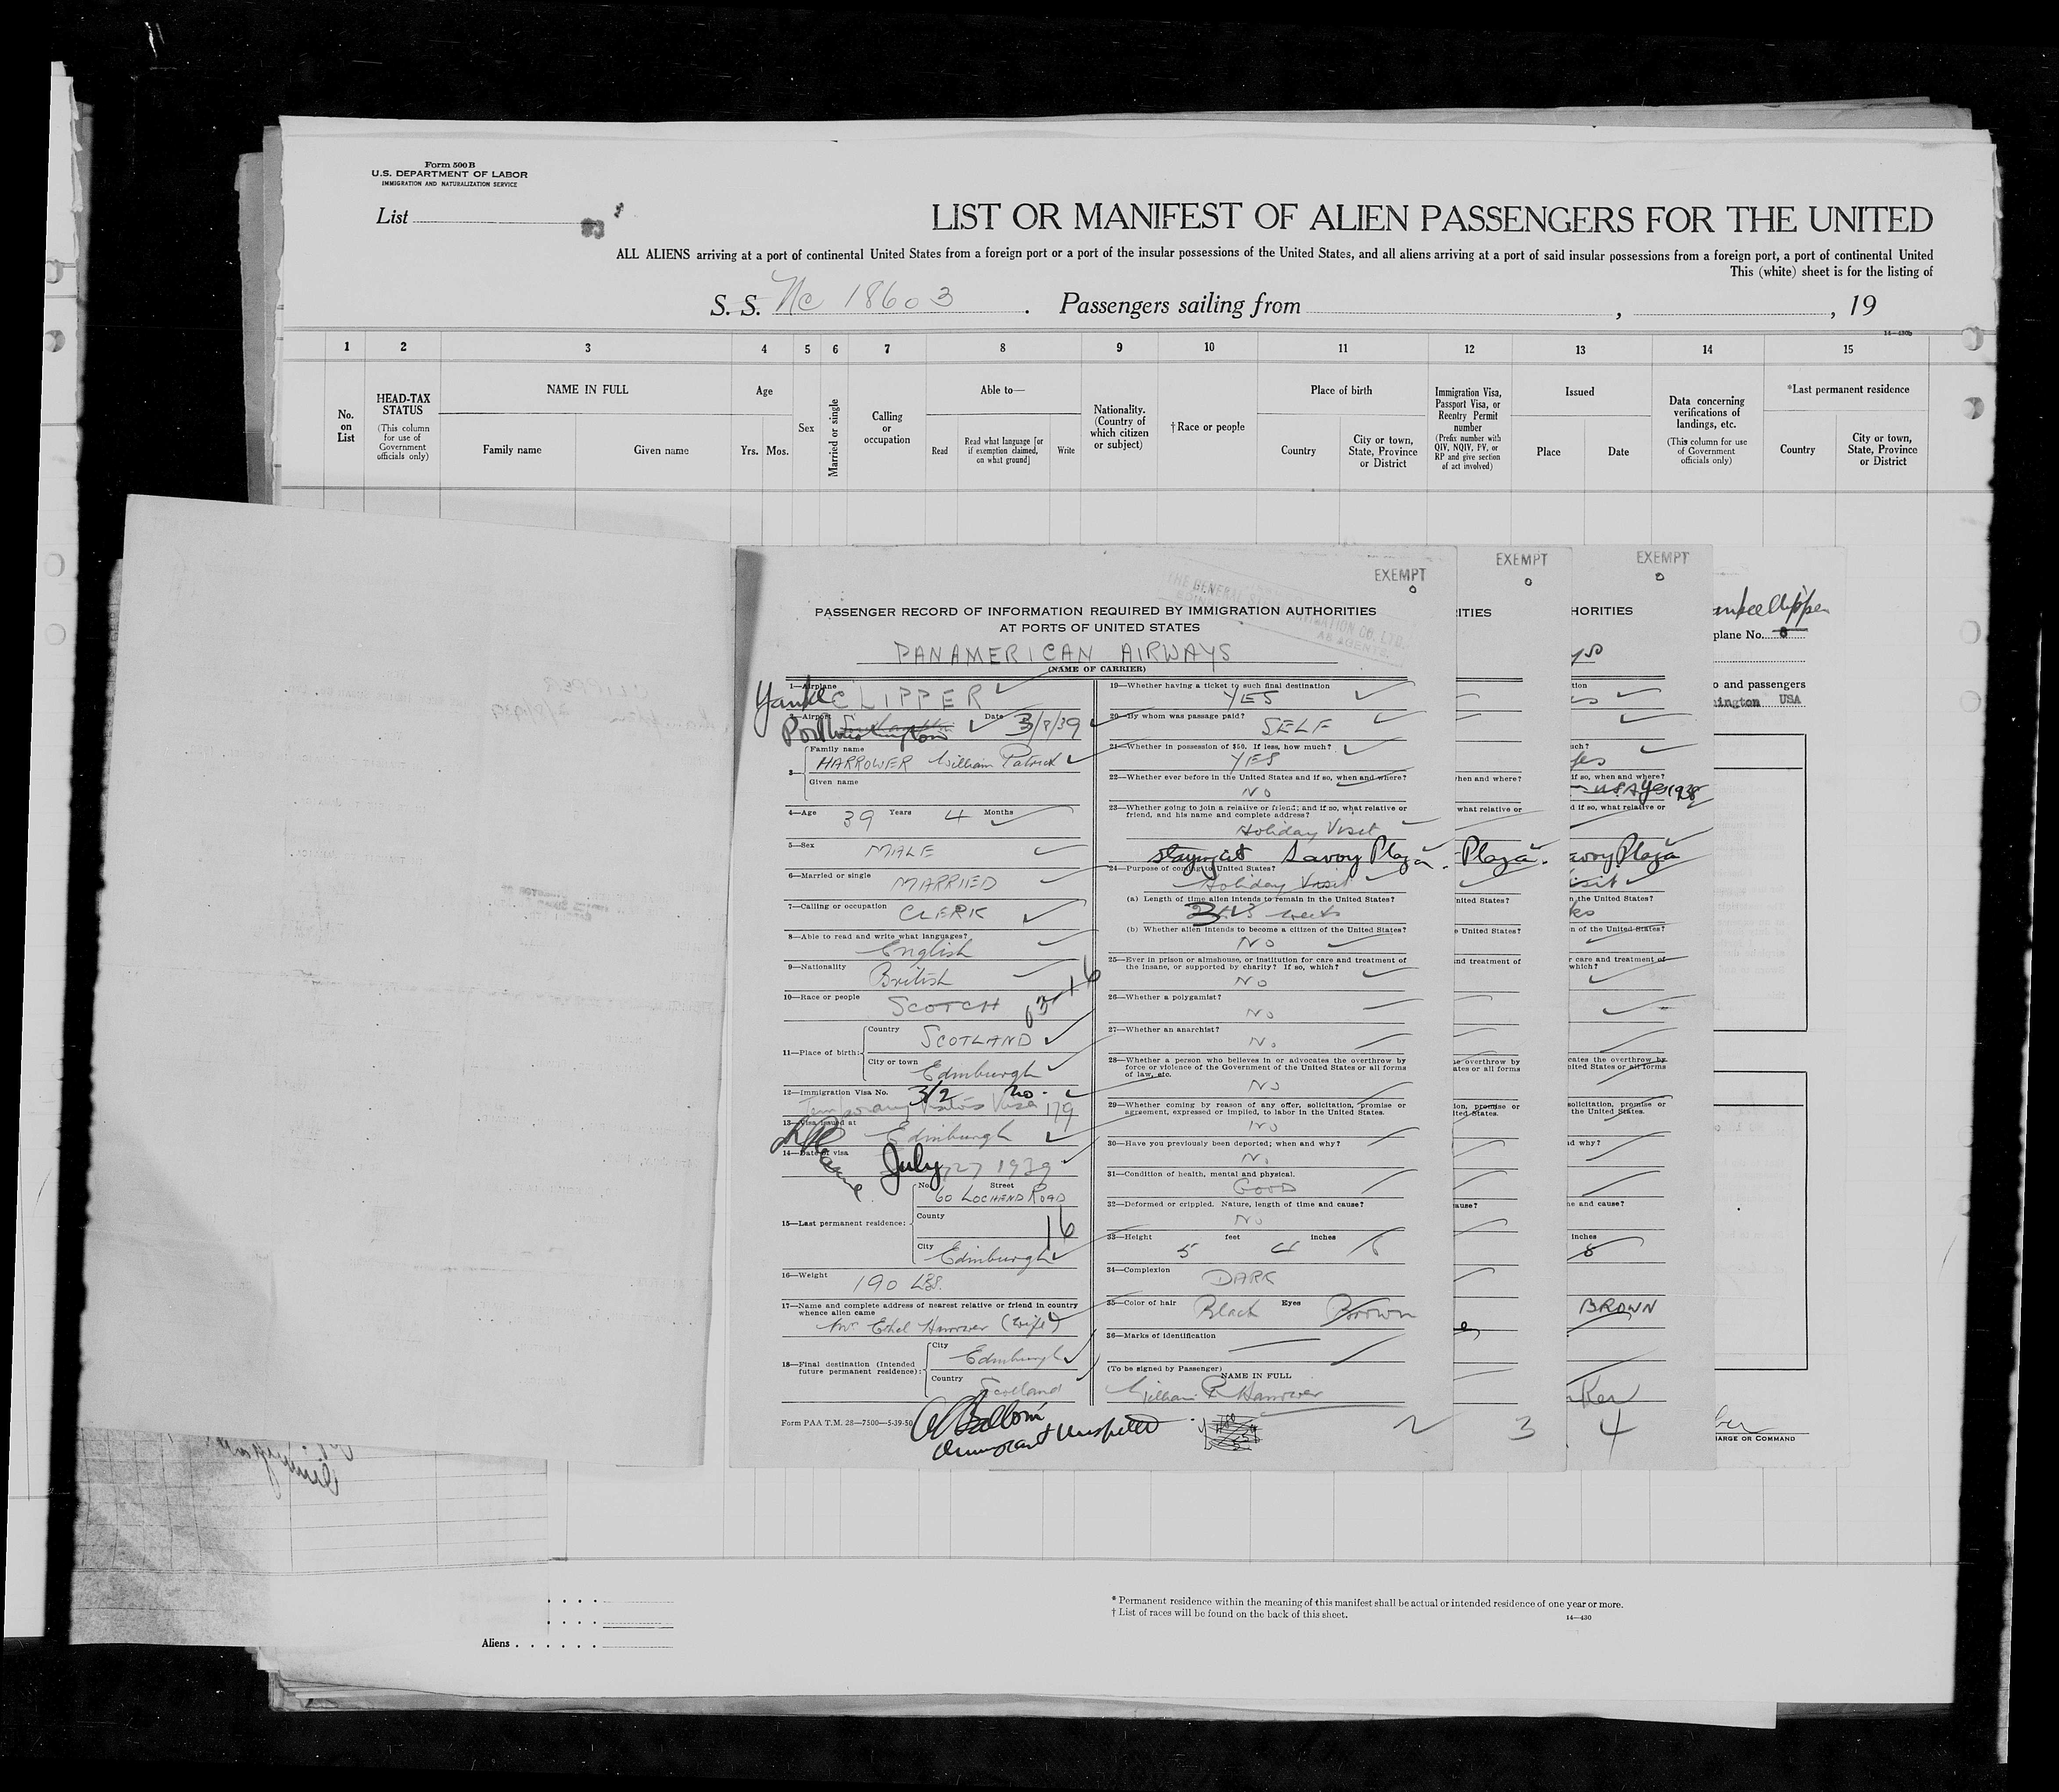 Form 500 B
U.S. DEPARTMENT OF LABOR
IMMIGRATION AND NATURALIZATION SERVICE
List
LIST OR MANIFEST OF ALIEN PASSENGERS FOR THE UNITED
ALL ALIENS arriving at a port of continental United States from a foreign port or a port of the insular possessions of the United States, and all aliens arriving at a port of said insular possessions from a foreign port, a port of continental United
This (white) sheet is for the listing of
S. S. Nc 18603. Passengers sailing from , , 19
14—430b
1 2 3 4 5 6 7 8 9 10 11 12 13 14 15
No. on List
HEAD-TAX STATUS
(This column for use of Government officials only)
NAME IN FULL
Family name Given name
Age
Yrs. Mos.
Sex
Married or single
Calling or occupation
Able to—
Read
Read what language [or if exemption claimed, on what ground]
Write
Nationality. (Country of which citizen or subject)
†Race or people
Place of birth
Country
City or town, State, Province or District
Immigration Visa, Passport Visa, or Reentry Permit number
(Prefix number with QIV, NQIV, PV, or RP and give section of act involved)
Issued
Place Date
Data concerning verifications of landings, etc.
(This column for use of Government officials only)
*Last permanent residence
Country
City or town, State, Province or District
EXEMPT
THE GENERAL STEAM NAVIGATION CO. LTD.
AS AGENTS
PASSENGER RECORD OF INFORMATION REQUIRED BY IMMIGRATION AUTHORITIES
AT PORTS OF UNITED STATES
PANAMERICAN AIRWAYS
(NAME OF CARRIER)
1—Airplane Yankee CLIPPER
2—Airport Port Washington Date 3/8/39
3— Family name
HARROWER William Patrick
Given name
4—Age 39 Years 4 Months
5—Sex MALE
6—Married or single MARRIED
7—Calling or occupation CLERK
8—Able to read and write what languages?
English
9—Nationality British
10—Race or people SCOTCH
11—Place of birth: Country SCOTLAND
City or town Edinburgh
12—Immigration Visa No. 3/2 no.
Temporary Visitors Visa 179
13—Visa issued at Edinburgh
14—Date of visa July 27 1939
15—Last permanent residence: No. Street
60 LOCHEND ROAD
County
16
City Edinburgh
16—Weight 190 LBS.
17—Name and complete address of nearest relative or friend in country whence alien came
Mrs Ethel Harrower (wife)
18—Final destination (Intended future permanent residence): City Edinburgh
Country Scotland
Form PAA T.M. 28—7500—5-39-50
Immigrant Inspector
19—Whether having a ticket to such final destination
YES
20—By whom was passage paid?
SELF
21—Whether in possession of $50. If less, how much?
YES
22—Whether ever before in the United States and if so, when and where?
NO
23—Whether going to join a relative or friend; and if so, what relative or friend, and his name and complete address?
Holiday Visit
staying at Savoy Plaza
24—Purpose of coming to United States?
Holiday Visit
(a) Length of time alien intends to remain in the United States?
weeks
(b) Whether alien intends to become a citizen of the United States?
NO
25—Ever in prison or almshouse, or institution for care and treatment of the insane, or supported by charity? If so, which?
NO
26—Whether a polygamist?
NO
27—Whether an anarchist?
No
28—Whether a person who believes in or advocates the overthrow by force or violence of the Government of the United States or all forms of law, etc.
NO
29—Whether coming by reason of any offer, solicitation, promise or agreement, expressed or implied, to labor in the United States.
NO
30—Have you previously been deported; when and why?
No
31—Condition of health, mental and physical.
GOOD
32—Deformed or crippled. Nature, length of time and cause?
NO
33—Height 5 feet 4 inches
34—Complexion DARK
35—Color of hair Black Eyes Brown
36—Marks of identification
(To be signed by Passenger) NAME IN FULL
William P Harrower
2
EXEMPT
ITIES
Plaza.
3
EXEMPT
HORITIES
Savoy Plaza
BROWN
4
plane No. 8
o and passengers
ington USA
HARGE OR COMMAND
* Permanent residence within the meaning of this manifest shall be actual or intended residence of one year or more.
† List of races will be found on the back of this sheet.
14—430
Aliens